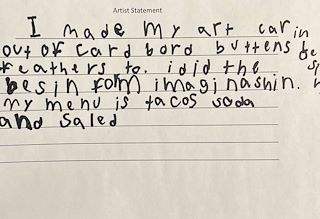 Artist Statement
I made my art car in
out of card bord buttens be
feathers to. i did the
besin form imaginashin.
my menu is tacos soda
and Saled